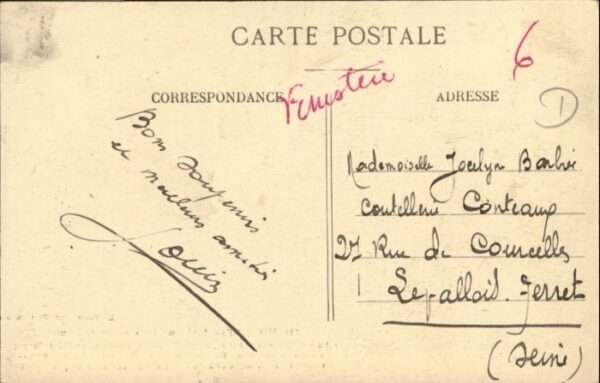 CARTE POSTALE
6
Finistère
CORRESPONDANCE
ADRESSE
D
Bon Souvenir
et meilleurs amitiés
Louis
Mademoiselle Jocelyn Barbié
Coutellerie Conteaux
27 Rue de Courcelles
Levallois-Perret
(Seine)